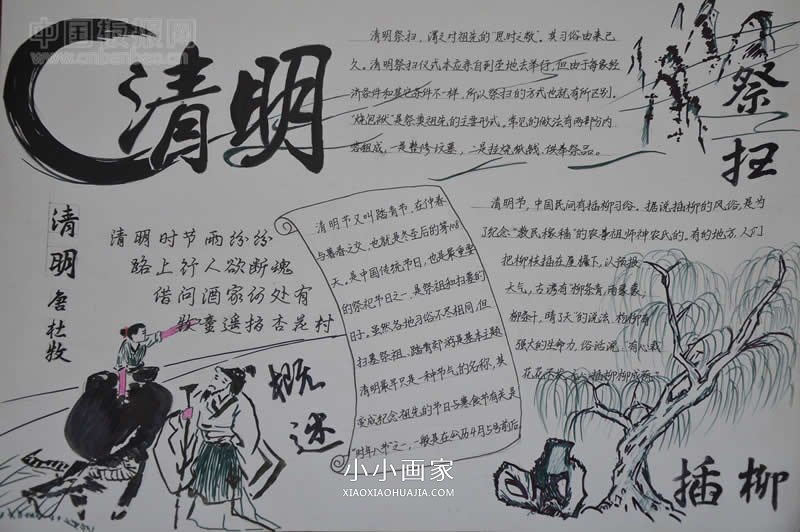 中国板报网
www.cnbanbao.cn
清明
清明祭扫，谓之对祖先的“思时之敬”。其习俗由来已
久。清明祭扫仪式本应亲自到茔地去举行，但由于每家经
济条件和其它条件不一样，所以祭扫的方式也就有所区别。
“烧包袱”是祭奠祖先的主要形式。常见的做法有两部分内
容组成，一是整修坟墓，二是挂烧纸钱、供奉祭品。
祭扫
清明 唐杜牧
清明时节雨纷纷
路上行人欲断魂
借问酒家何处有
牧童遥指杏花村
概述
清明节又叫踏青节，在仲春
与暮春之交，也就是冬至后的第108
天。是中国传统节日，也是最重要
的祭祀节日之一，是祭祖和扫墓的
日子。虽然各地习俗不尽相同，但
扫墓祭祖、踏青郊游是基本主题
清明最早只是一种节气的名称，其
变成纪念祖先的节日与寒食节有关是
一般是在公历4月5号前后。
清明节，中国民间有插柳习俗。据说插柳的风俗，是为
了纪念“教民稼穑”的农事祖师神农氏的。有的地方，人们
把柳枝插在屋檐下，以预报
天气，古谚有“柳条青，雨蒙蒙，
柳条干，晴了天”的说法。杨柳有
强大的生命力，俗话说：有心栽
花花不发，无心插柳柳成荫。
插柳
小小画家
XIAOXIAOHUAJIA.COM